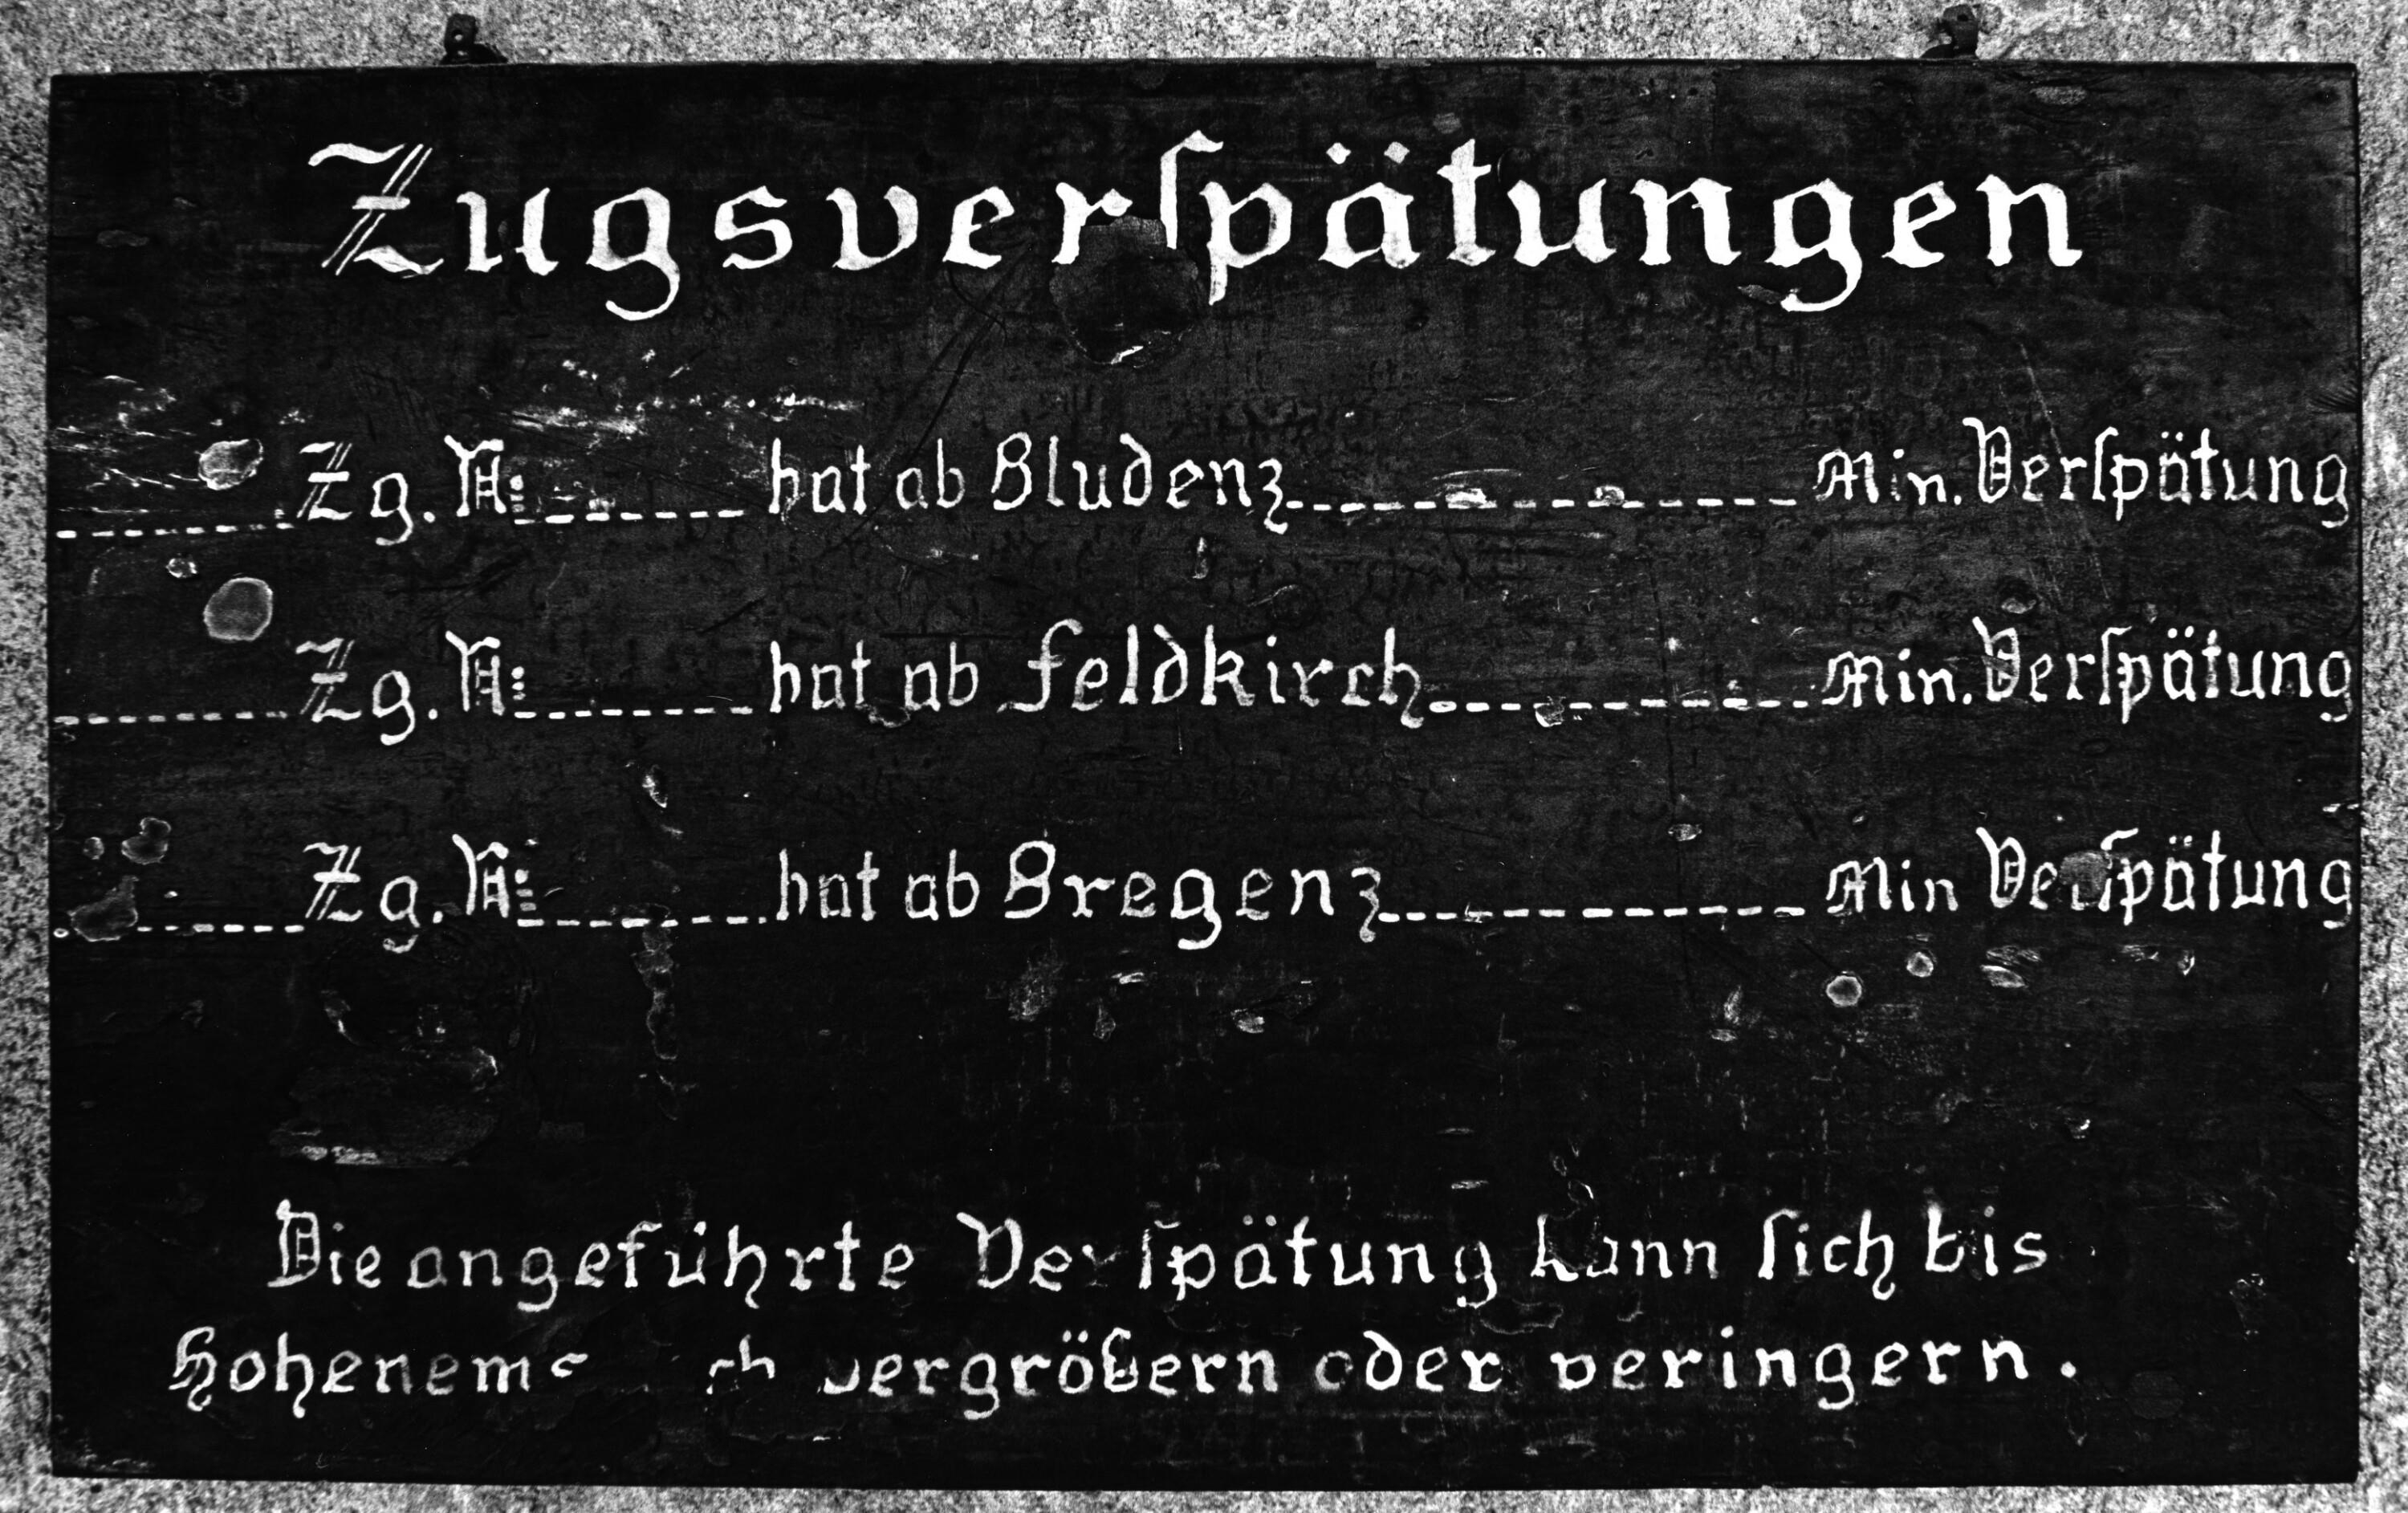 Zugsverſpätungen
Zg. N: hat ab Bludenz Min. Verſpätung
Zg. N: hat ab Feldkirch Min. Verſpätung
Zg. N: hat ab Bregenz Min Verſpätung
Die angeführte Verſpätung kann ſich bis
Hohenems vergrößern oder veringern.